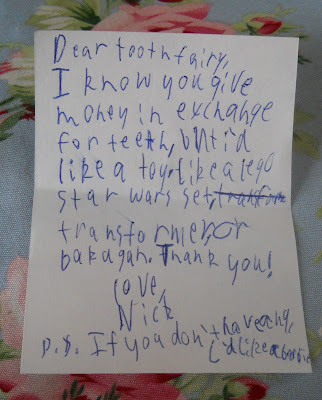 Dear tooth fairy,
I know you give
money in exchange
for teeth, but i'd
like a toy, like a lego
star wars set, transfom
transformer, or
bakagan. Thank you!
Love,
Nick
P.S. If you don't have any,
I'd like a